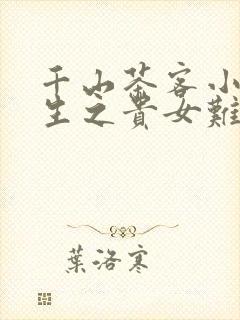 千山茶客小
生之貴女難
葉洛寒